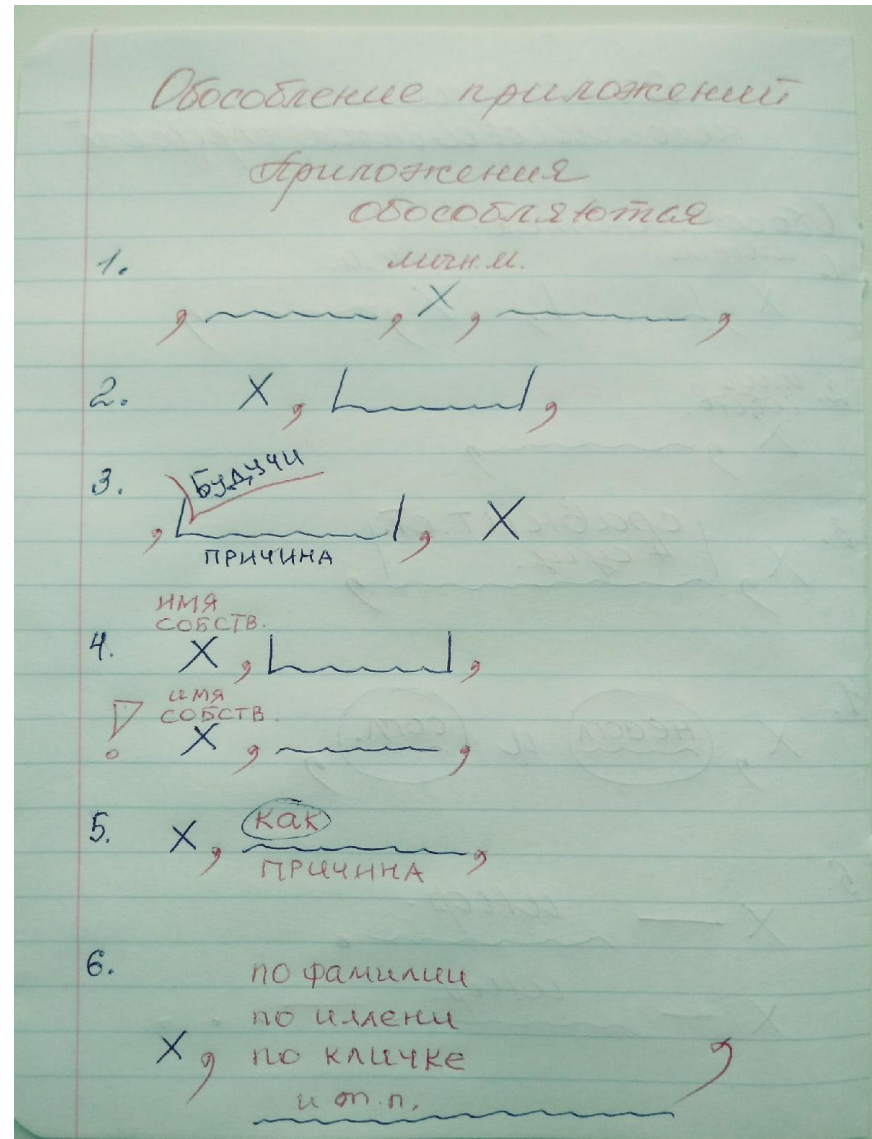 Обособление приложений
Приложения
обособляются
1. личн.м.
, , X, ,
2. X, ,
3. Будучи
, , X
причина
имя
собств.
4. X, ,
! имя
собств.
X, ,
5. X, как ,
причина
6. по фамилии
по имени
X, по кличке ,
и т.п.